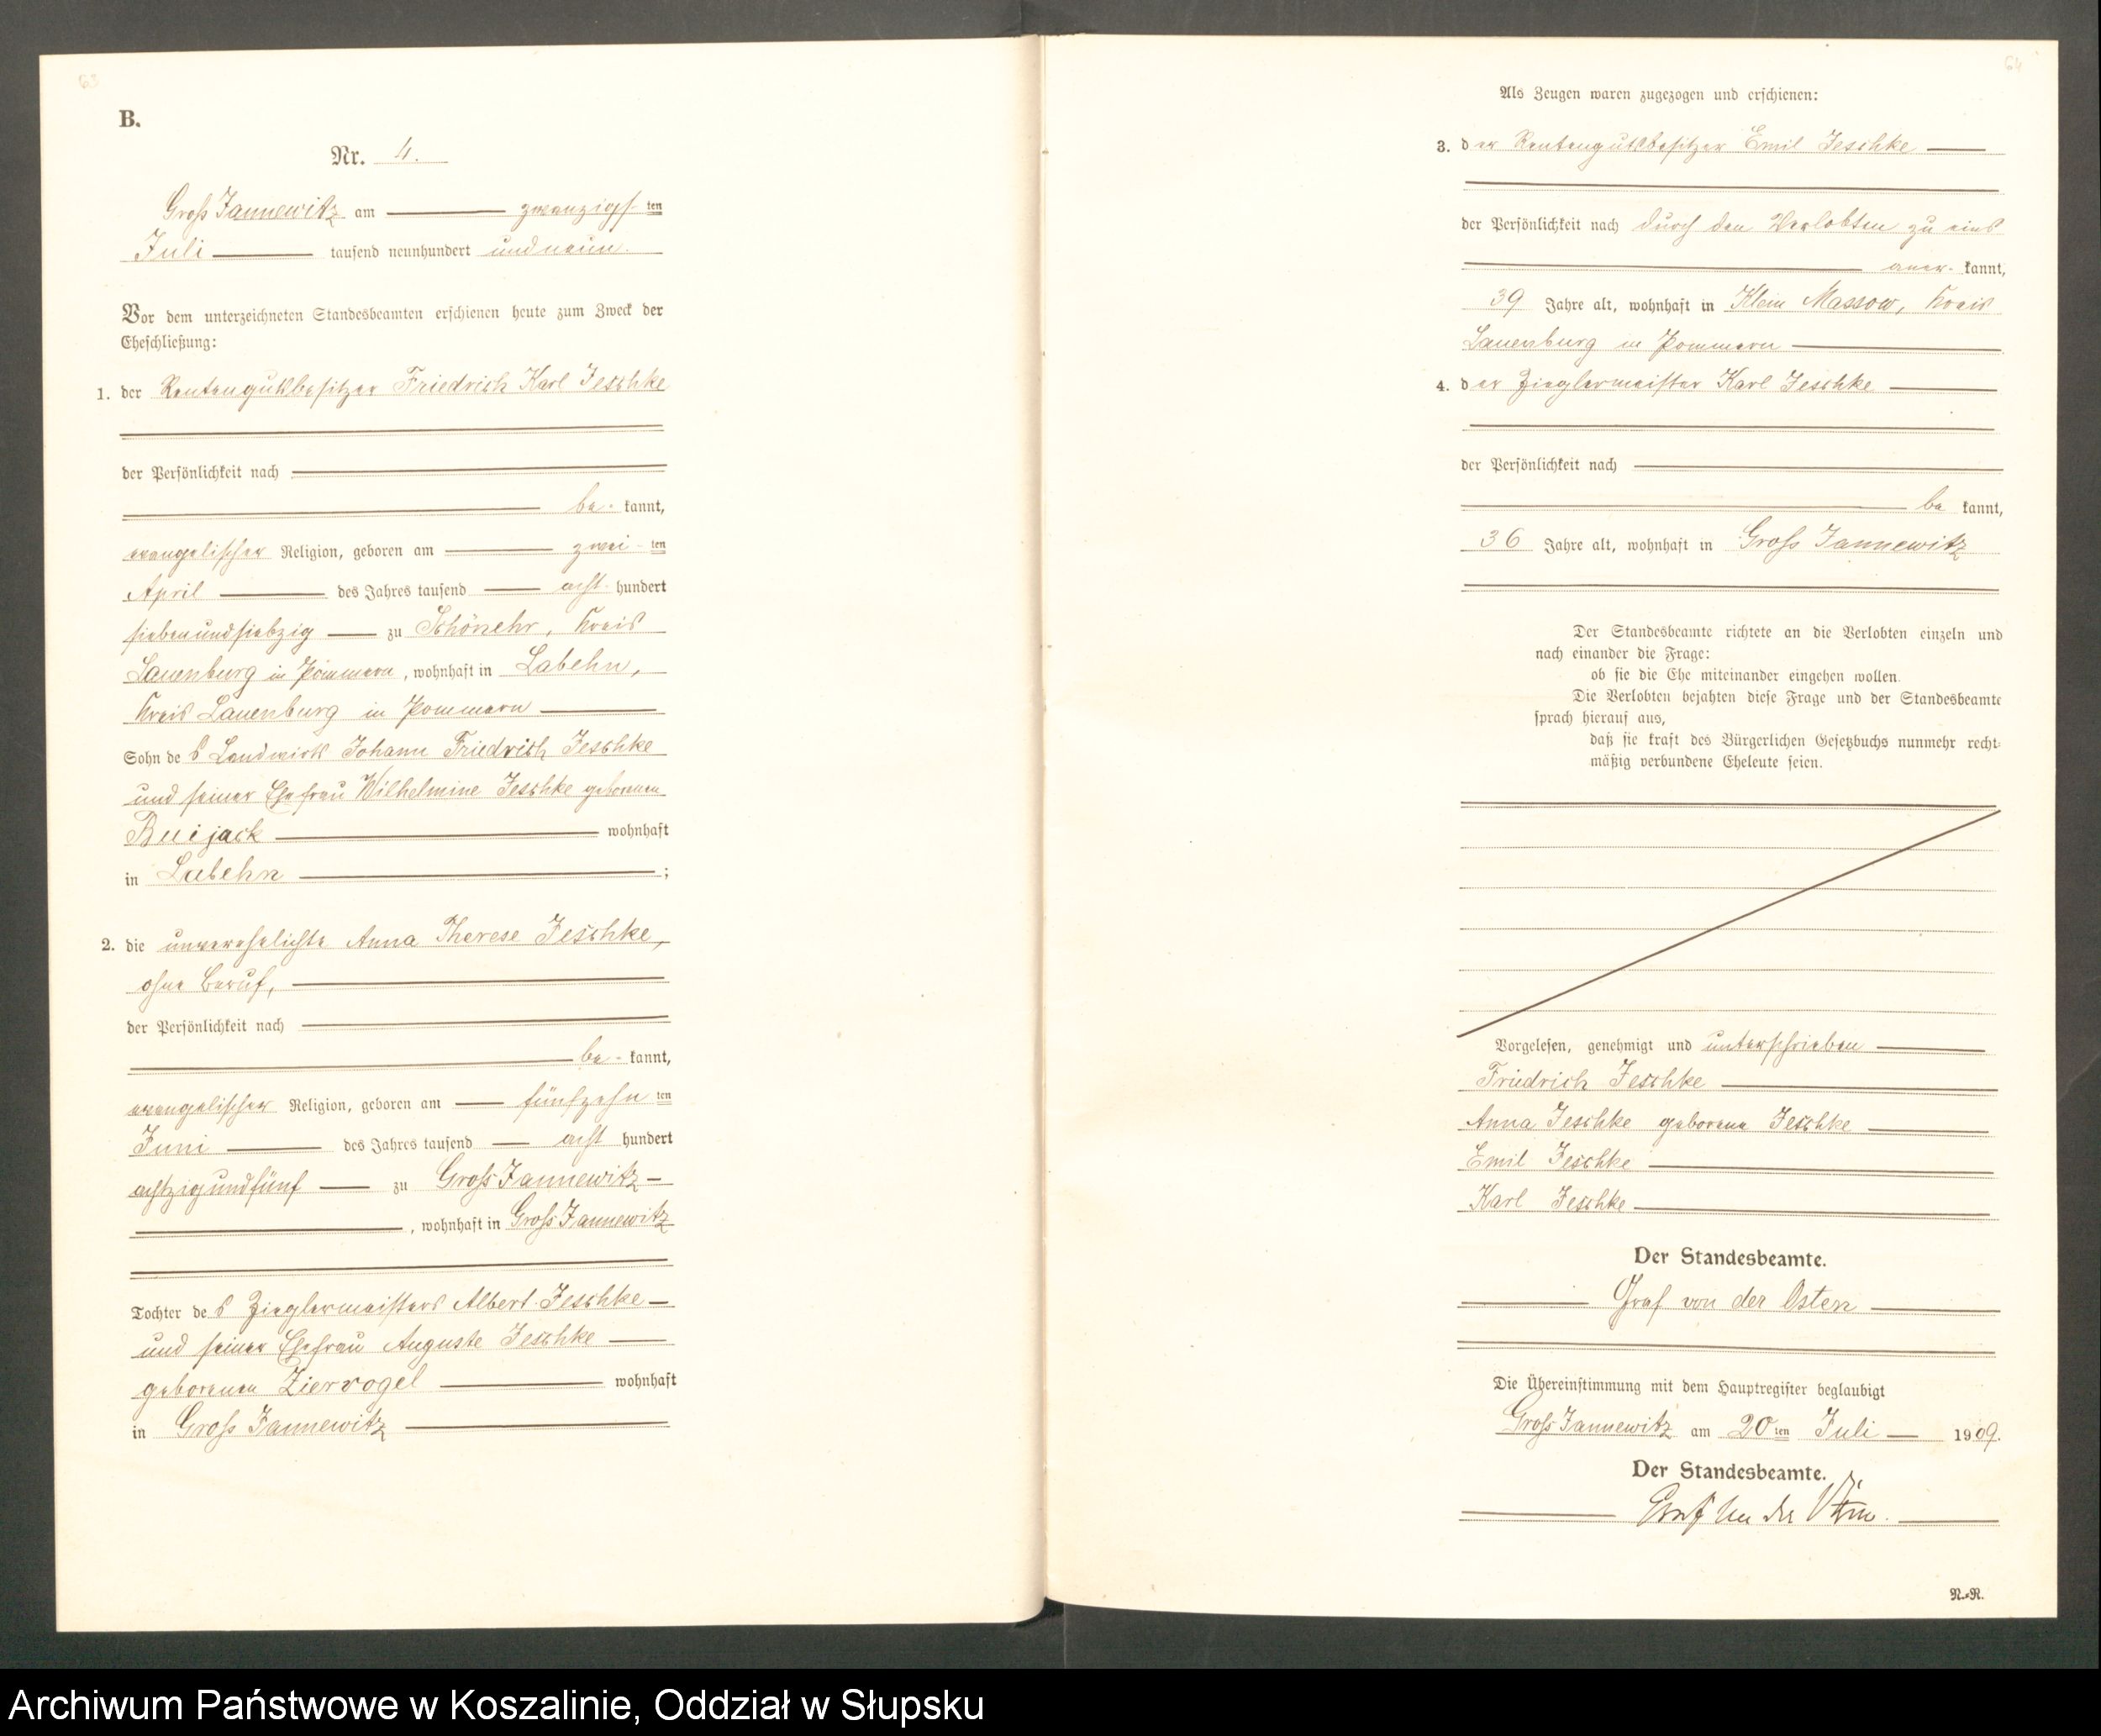 63
B.
Nr. 4.
Groß Jannewitz am zwanzigsten
Juli tausend neunhundert und neun.
Vor dem unterzeichneten Standesbeamten erschienen heute zum Zweck der
Eheschließung:
1. der Rentengutsbesitzer Friedrich Karl Jeschke
der Persönlichkeit nach
be- kannt,
evangelischer Religion, geboren am zwei- ten
April des Jahres tausend acht hundert
siebenundsiebzig zu Schönehr, Kreis
Lauenburg in Pommern, wohnhaft in Labehn,
Kreis Lauenburg in Pommern
Sohn des Landwirts Johann Friedrich Jeschke
und seiner Ehefrau Wilhelmine Jeschke geborenen
wohnhaft
in Labehn ;
2. die unverehelichte Anna Therese Jeschke,
ohne Beruf,
der Persönlichkeit nach
be- kannt,
evangelischer Religion, geboren am fünfzehn ten
Juni des Jahres tausend acht hundert
achtzigundfünf zu Groß Jannewitz
, wohnhaft in Groß Jannewitz
Tochter des Zieglermeisters Albert Jeschke
und seiner Ehefrau Auguste Jeschke
geborenen Ziervogel wohnhaft
in Groß Jannewitz
64
Als Zeugen waren zugezogen und erschienen:
3. der Rentengutsbesitzer Emil Jeschke
der Persönlichkeit nach durch den Verlobten zu eins
aner- kannt,
39 Jahre alt, wohnhaft in Klein Massow, Kreis
Lauenburg in Pommern
4. der Zieglermeister Karl Jeschke
der Persönlichkeit nach
be kannt,
36 Jahre alt, wohnhaft in Groß Jannewitz
Der Standesbeamte richtete an die Verlobten einzeln und
nach einander die Frage:
ob sie die Ehe miteinander eingehen wollen.
Die Verlobten bejahten diese Frage und der Standesbeamte
sprach hierauf aus,
daß sie kraft des Bürgerlichen Gesetzbuchs nunmehr recht-
mäßig verbundene Eheleute seien.
Vorgelesen, genehmigt und unterschrieben
Friedrich Jeschke
Anna Jeschke geborene Jeschke
Emil Jeschke
Karl Jeschke
Der Standesbeamte.
Graf von der Osten
Die Übereinstimmung mit dem Hauptregister beglaubigt
Groß Jannewitz am 20 ten Juli 1909.
Der Standesbeamte.
Graf von der Osten.
N.-R.
Archiwum Państwowe w Koszalinie, Oddział w Słupsku